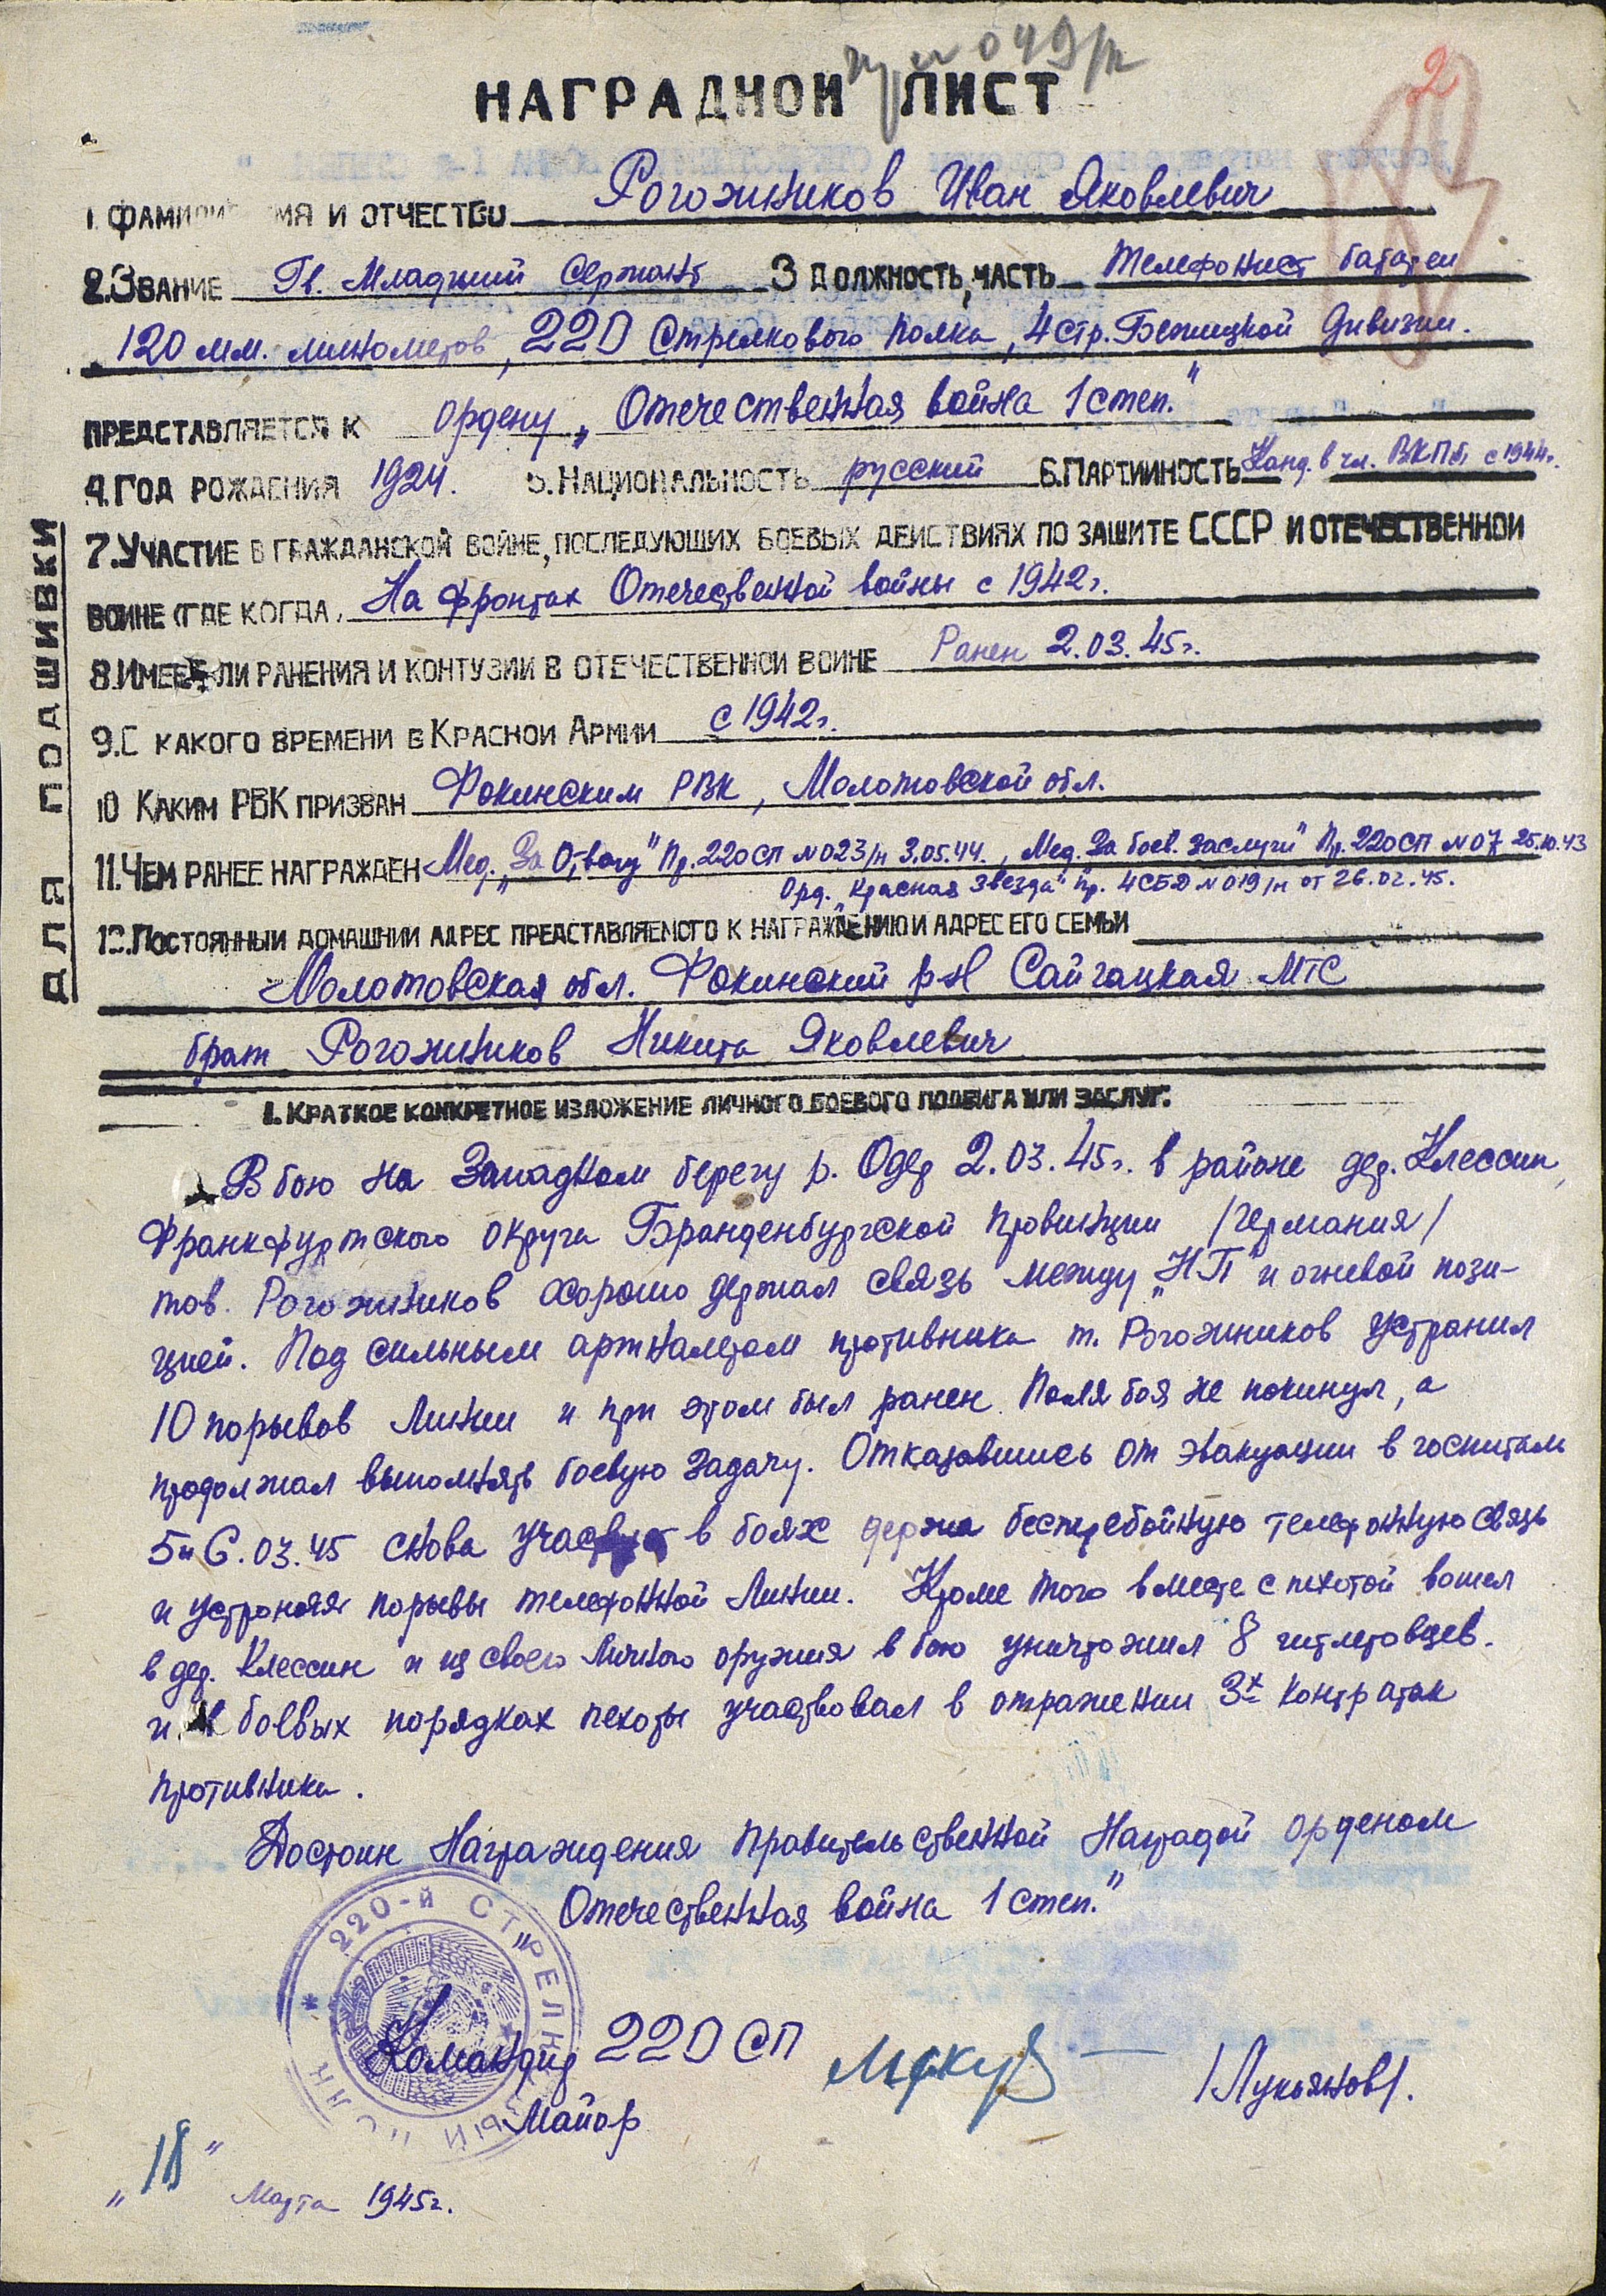 пр № 049/н
НАГРАДНОЙ ЛИСТ
2
1. ФАМИЛИЯ ИМЯ И ОТЧЕСТВО Рогожников Иван Яковлевич
2. ЗВАНИЕ Гв. Младший Сержант 3 ДОЛЖНОСТЬ, ЧАСТЬ Телефонист батареи
120 мм. минометов, 220 Стрелкового полка, 4 стр. Бежицкой дивизии.
ПРЕДСТАВЛЯЕТСЯ К ордену „Отечественная война 1 степ."
4. ГОД РОЖДЕНИЯ 1924. 5. НАЦИОНАЛЬНОСТЬ русский 6. ПАРТИЙНОСТЬ Канд. в чл. ВКПб с 1944г.
7. УЧАСТИЕ В ГРАЖДАНСКОЙ ВОЙНЕ, ПОСЛЕДУЮЩИХ БОЕВЫХ ДЕЙСТВИЯХ ПО ЗАЩИТЕ СССР И ОТЕЧЕСТВЕННОЙ
ВОЙНЕ (ГДЕ КОГДА) На фронтах Отечественной войны с 1942г.
8. ИМЕЕТ ЛИ РАНЕНИЯ И КОНТУЗИИ В ОТЕЧЕСТВЕННОЙ ВОЙНЕ Ранен 2.03.45г.
9. С КАКОГО ВРЕМЕНИ В КРАСНОЙ АРМИИ с 1942г.
10 КАКИМ РВК ПРИЗВАН Фокинским РВК, Молотовской обл.
11. ЧЕМ РАНЕЕ НАГРАЖДЕН Мед. „За Отвагу" Пр. 220 СП №023/н 3.05.44., Мед. За боев. заслуги" Пр. 220 СП №07 25.10.43
Орд. „Красная Звезда" пр. 4 СБД №019/н от 26.02.45.
12. ПОСТОЯННЫЙ ДОМАШНИЙ АДРЕС ПРЕДСТАВЛЯЕМОГО К НАГРАЖДЕНИЮ И АДРЕС ЕГО СЕМЬИ
Молотовская обл. Фокинский р-н Сайгацкая МТС
брат Рогожников Никита Яковлевич
ДЛЯ ПОДШИВКИ
1. КРАТКОЕ КОНКРЕТНОЕ ИЗЛОЖЕНИЕ ЛИЧНОГО БОЕВОГО ПОДВИГА ИЛИ ЗАСЛУГ.
В бою на Западном берегу р. Одер 2.03.45г. в районе дер. Клессин,
Франкфуртского округа Бранденбургской провинции /Германия/
тов. Рогожников хорошо держал связь между „НП" и огневой пози-
цией. Под сильным артналетом противника т. Рогожников устранил
10 порывов линии и при этом был ранен. Поля боя не покинул, а
продолжал выполнять боевую задачу. Отказавшись от эвакуации в госпиталь
5 и 6.03.45 снова участвует в боях держа бесперебойную телефонную связь
и устраняя порывы телефонной линии. Кроме того вместе с пехотой вошел
в дер. Клессин и из своего личного оружия в бою уничтожил 8 гитлеровцев.
и в боевых порядках пехоты участвовал в отражении 3х контратак
противника.
Достоин Награждения Правительственной Наградой орденом
„Отечественная война 1 степ."
220-й СТРЕЛКОВЫЙ ПОЛК
Командир 220 СП
Майор /Лукьянов/.
„18" Марта 1945г.